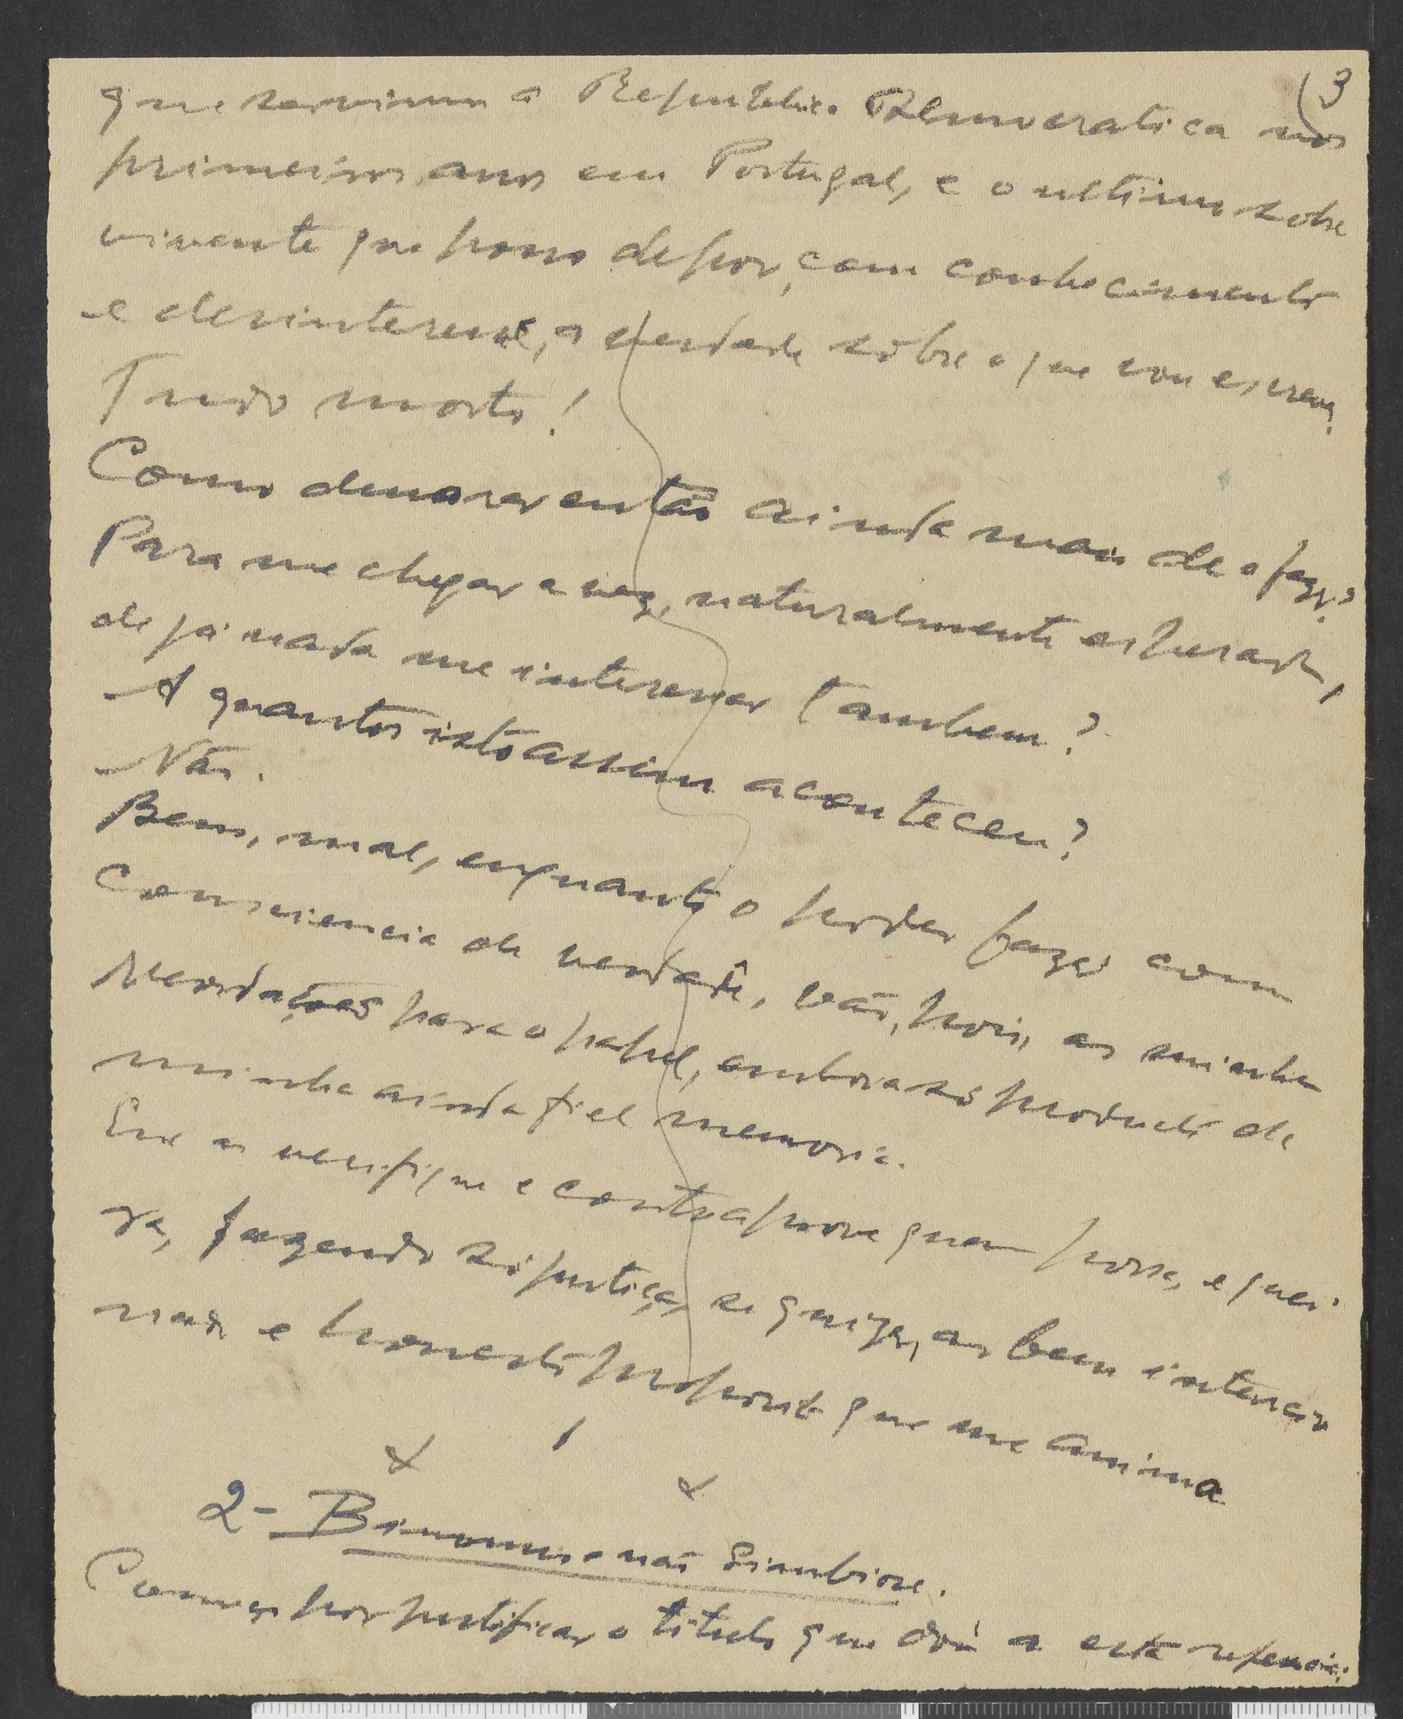 (3
que serviram a Republica Democratica nos
primeiros anos em Portugal, e o ultimo sobre
vivente que posso depor, com conhecimento
e desinteresse, a verdade sôbre o que vou escrever.
Tudo morto!
Como demorar então ainda mais de o fazer?
Para me chegar a vez, naturalmente esperada,
de já nada me interessar tambem?
A quantos isto assim aconteceu?
Não.
Bem, mal, enquanto o poder fazer com
consciencia da verdade, vão, pois, as minhas
recordações para o papel, embora só producto da
minha ainda fiel memoria.
Que as verifique e contraprove quem possa, e quei-
ra, fazendo só justiça, se quizer, ao bem intencio
nado e honesto proposito que me anima
x x
2- Binomio e não Simbiose.
Começo por justificar o titulo que dou a esta